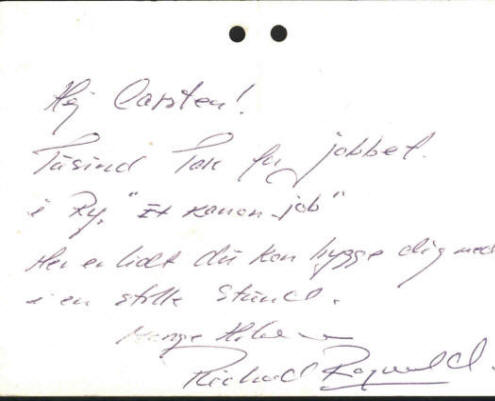 Hej Carsten!
Tusind Tak for jobbet.
i Ry, "Et kanon job"
Her er lidt du kan hygge dig med
i en stille stund.
Mange Hilsner
Richard Ragnvald.